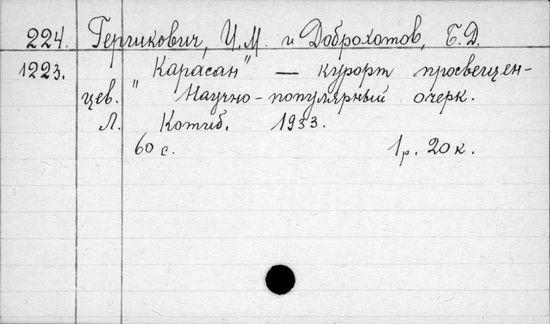 224. Гергикович, И.М. и Доброхотов, Б.Д.
1223. "Карасан" — курорт просвещен-
цев. Научно-популярный очерк.
Л. Котиб. 1933.
60 с. 1 р. 20 к.